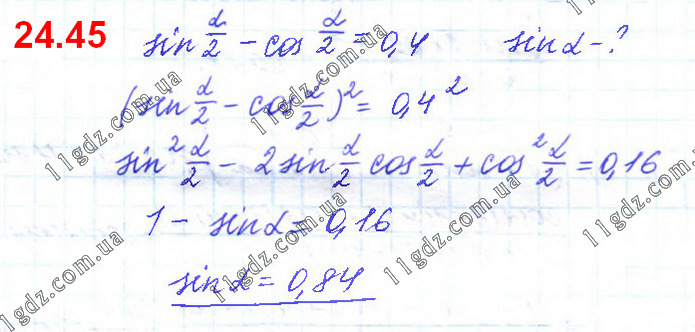 24.45 sin α/2 − cos α/2 = 0,4 sinα − ?
(sin α/2 − cos α/2)² = 0,4²
sin² α/2 − 2sin α/2 cos α/2 + cos² α/2 = 0,16
1 − sinα = 0,16
sinα = 0,84
11gdz.com.ua
11gdz.com.ua
11gdz.com.ua
11gdz.com.ua
11gdz.com.ua
11gdz.com.ua
11gdz.com.ua